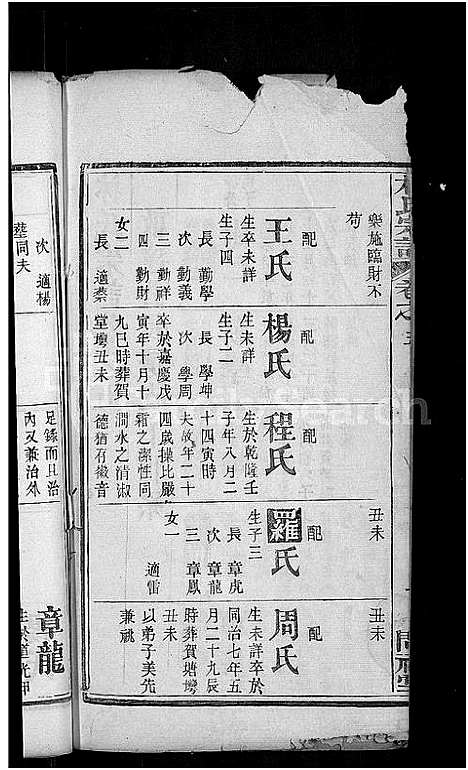 樂施臨財不
苟
配
王氏
生卒未詳
生子四
長 勤學
次 勤義
三 勤祥
四 勤財
女二
長 適蔡
次 適楊
塟同夫
配
楊氏
生未詳
生子二
長 學坤
次 學周
卒於嘉慶戊
寅年十月十
九巳時葬賀
堂塆丑未
配
程氏
生於乾隆壬
子年八月二
十四寅時
夫故年二十
四歲操比嚴
霜之潔性同
澗水之清淑
德猶有徽音
足錄而且治
內又兼治外
丑未
配
羅氏
生子三
長 章虎
次 章龍
三 章鳳
女一
適雷
丑未
配
周氏
生未詳卒於
同治七年五
月二十九辰
時葬賀塘塆
丑未
以弟子美先
兼祧
章龍
生於道光甲